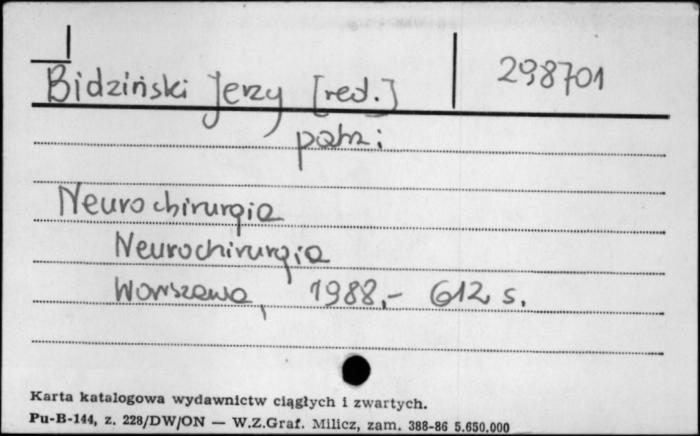 Bidziński Jerzy [red.] 298701
patrz:
Neurochirurgia
Neurochirurgia
Warszawa, 1988,- 612 s.
Karta katalogowa wydawnictw ciągłych i zwartych.
Pu-B-144, z. 228/DW/ON — W.Z.Graf. Milicz, zam. 388-86 5.650.000